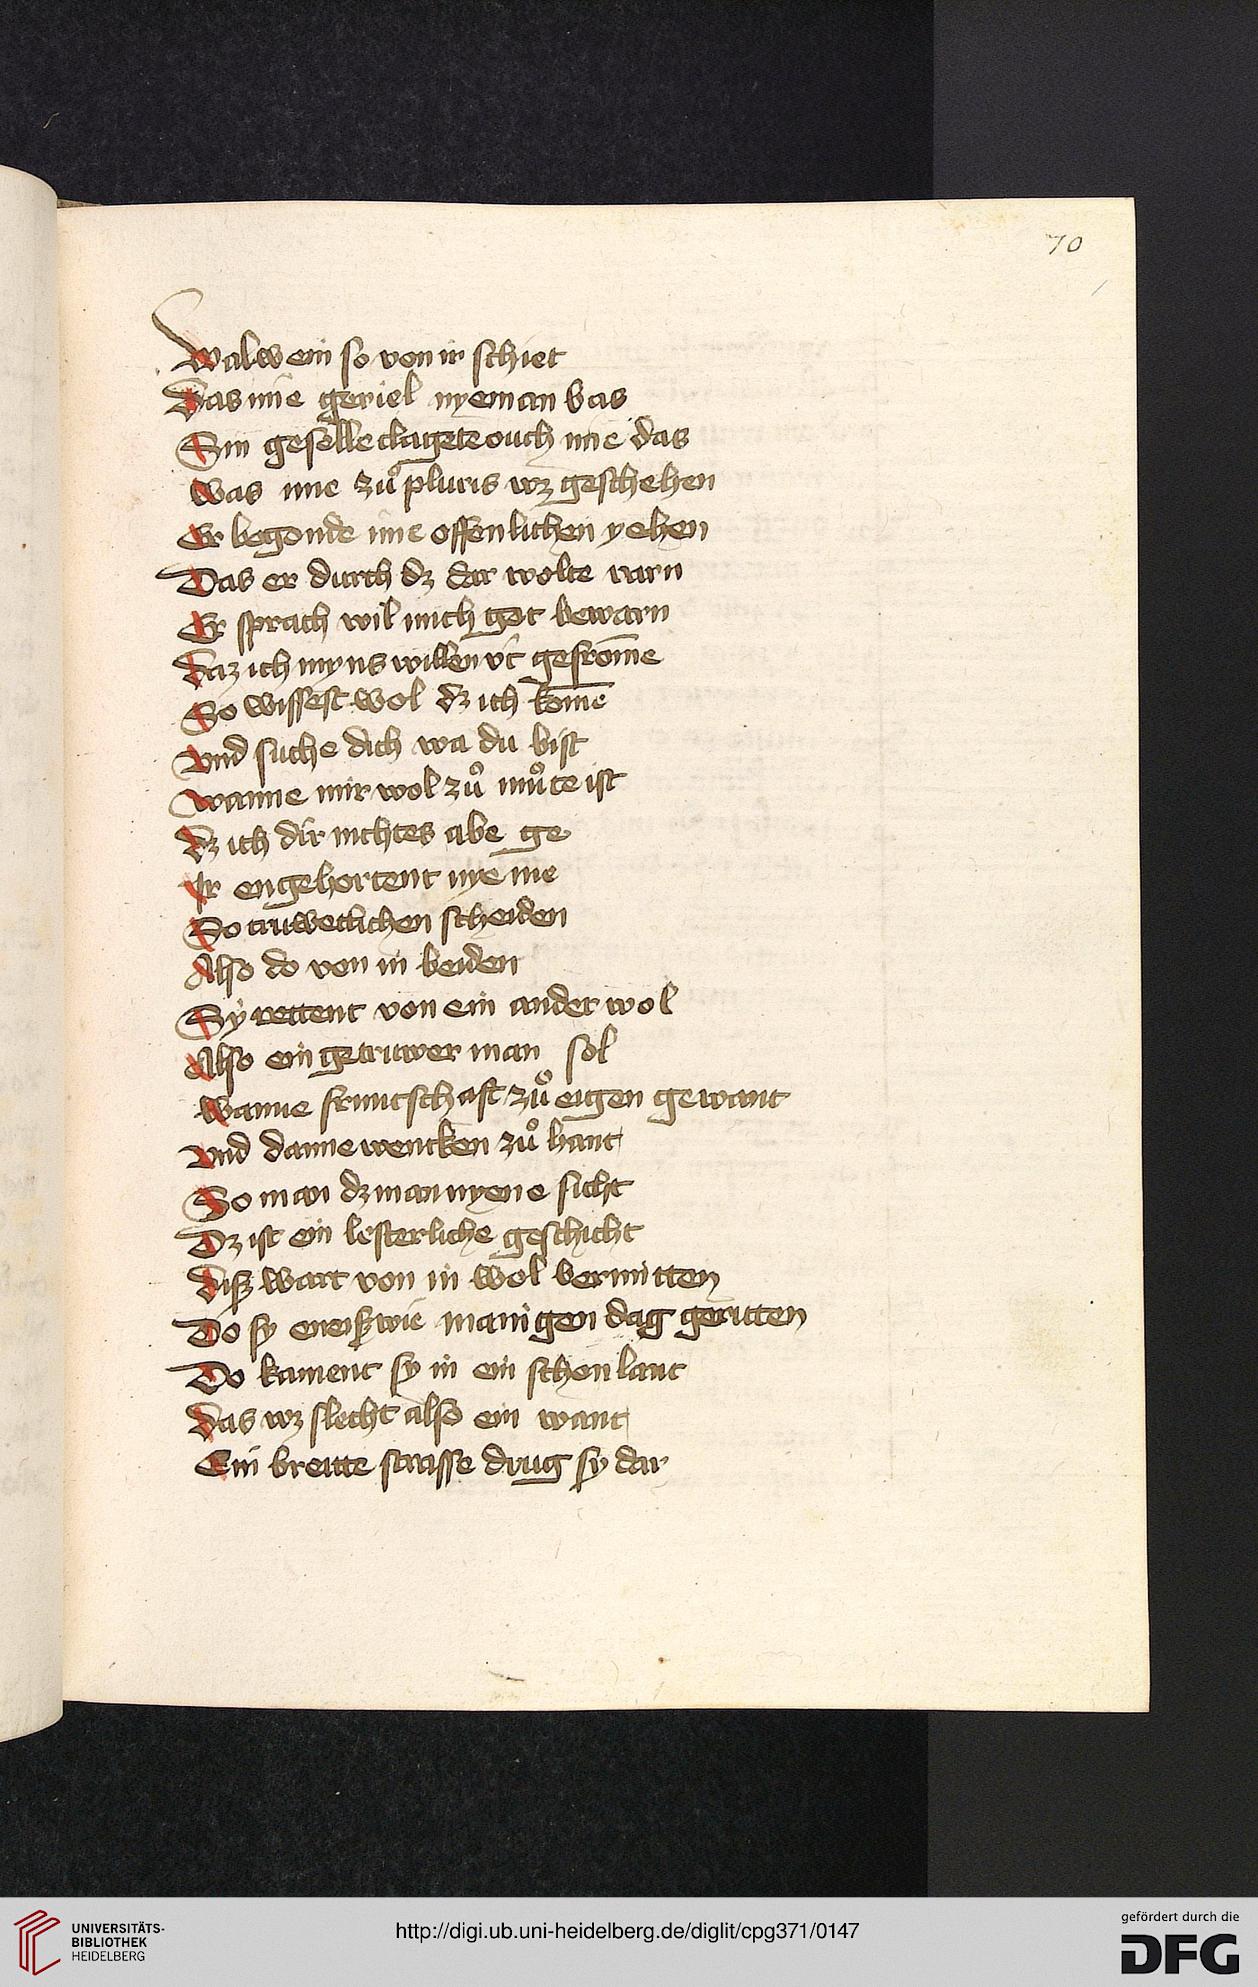 70
Walwein so von ir schiet
Das ime geviel nyeman bas
Sin geselle clagete ouch ime das
Was ime zuͦ pluris wz geschehen
Er begonde ime offenlichen yehen
Das er durch dz dar wolte varn
Er sprach wil mich got bewarn
Daz ich myns willen vt gefrōme
So wissest wol dz ich kōme
Vnd suche dich wa du bist
Wanne mir wol zuͦ muͦte ist
Dz ich dir nichtes abe ge
Ir engehortent nye me
So truwetlichen scheiden
Also do von in beiden
Sy rettent von ein ander wol
Also ein getruwer man sol
Wanne fruntschaft zuͦ eigen gewant
Vnd danne wencken zuͦ hant
So man dz man nyene sicht
Dz ist ein lesterliche geschicht
Diß wart von in wol vermitten
Do sy eneißwie manigen dag geritten
Do kament sy in ein schon lant
Das wz slecht also ein want
Ein breitte strasse drug sy dar
UNIVERSITÄTS-
BIBLIOTHEK
HEIDELBERG
http://digi.ub.uni-heidelberg.de/diglit/cpg371/0147
gefördert durch die
DFG